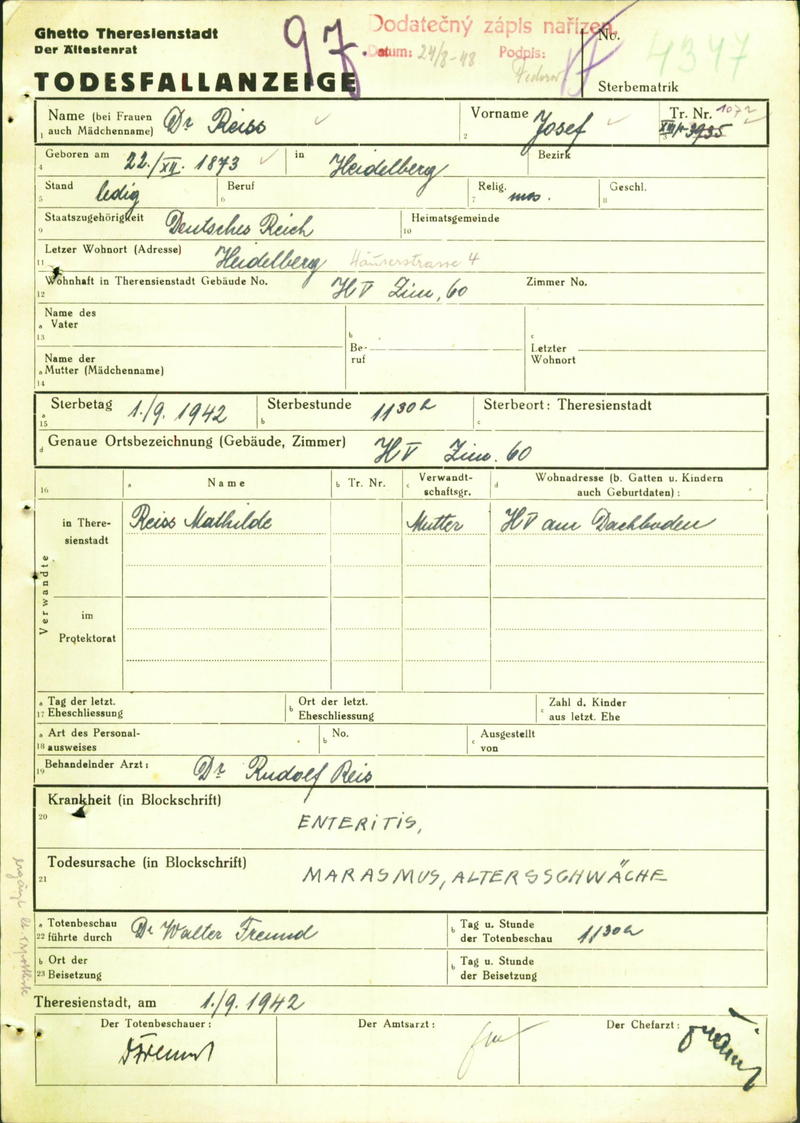 Ghetto Theresienstadt
Der Ältestenrat
TODESFALLANZEIGE
97.
Dodatečný zápis nařízen.
Datum: 24/8-48 Podpis:
No. 4347
Sterbematrik
Name (bei Frauen auch Mädchenname) Dr Reiss
1
Vorname Josef
2
Tr. Nr. 1072
3
Geboren am 22./XII. 1873 in Heidelberg Bezirk
4
Stand ledig Beruf Relig. mos. Geschl.
5 6 7 8
Staatszugehörigkeit Deutsches Reich Heimatsgemeinde
9 10
Letzer Wohnort (Adresse) Heidelberg Häusserstrasse 4
11
Wohnhaft in Therensienstadt Gebäude No. H V Zim. 60 Zimmer No.
12
Name des
a Vater
13
b Beruf
c Letzter Wohnort
Name der
a Mutter (Mädchenname)
14
a Sterbetag 1./9. 1942 b Sterbestunde 11 30 h c Sterbeort: Theresienstadt
15
d Genaue Ortsbezeichnung (Gebäude, Zimmer) H V Zim. 60
16 a Name b Tr. Nr. c Verwandtschaftsgr. d Wohnadresse (b. Gatten u. Kindern auch Geburtdaten):
Verwandte
in Theresienstadt Reiss Mathilde Mutter H V am Dachboden
im Protektorat
a Tag der letzt. b Ort der letzt. c Zahl d. Kinder
17 Eheschliessung Eheschliessung aus letzt. Ehe
a Art des Personal- b No. c Ausgestellt
18 ausweises von
Behandelnder Arzt: Dr Rudolf Reis
19
Krankheit (in Blockschrift)
20 ENTERITIS,
Todesursache (in Blockschrift)
21 MARASMUS, ALTERSSCHWÄCHE
a Totenbeschau Dr Walter Freund b Tag u. Stunde
22 führte durch der Totenbeschau 11 30 h
b Ort der b Tag u. Stunde
23 Beisetzung der Beisetzung
Theresienstadt, am 1./9. 1942
Der Totenbeschauer: Der Amtsarzt: Der Chefarzt:
Freund